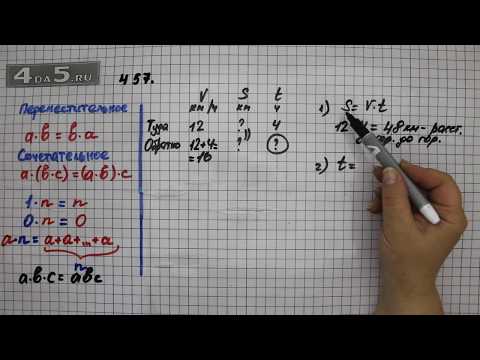 4DA5.RU
457.
Переместительное
a·b = b·a
Сочетательное
a·(b·c)=(a·b)·c
1·n = n
0·n = 0
a·n = a+a+...+a
n
a·b·c = abc
V S t
км/ч км ч
Туда 12 ? 4
Обратно 12+4= ? ?
=16
1)
1) S= V·t
= 48 км- расст.
гор. до гор.
2) t=